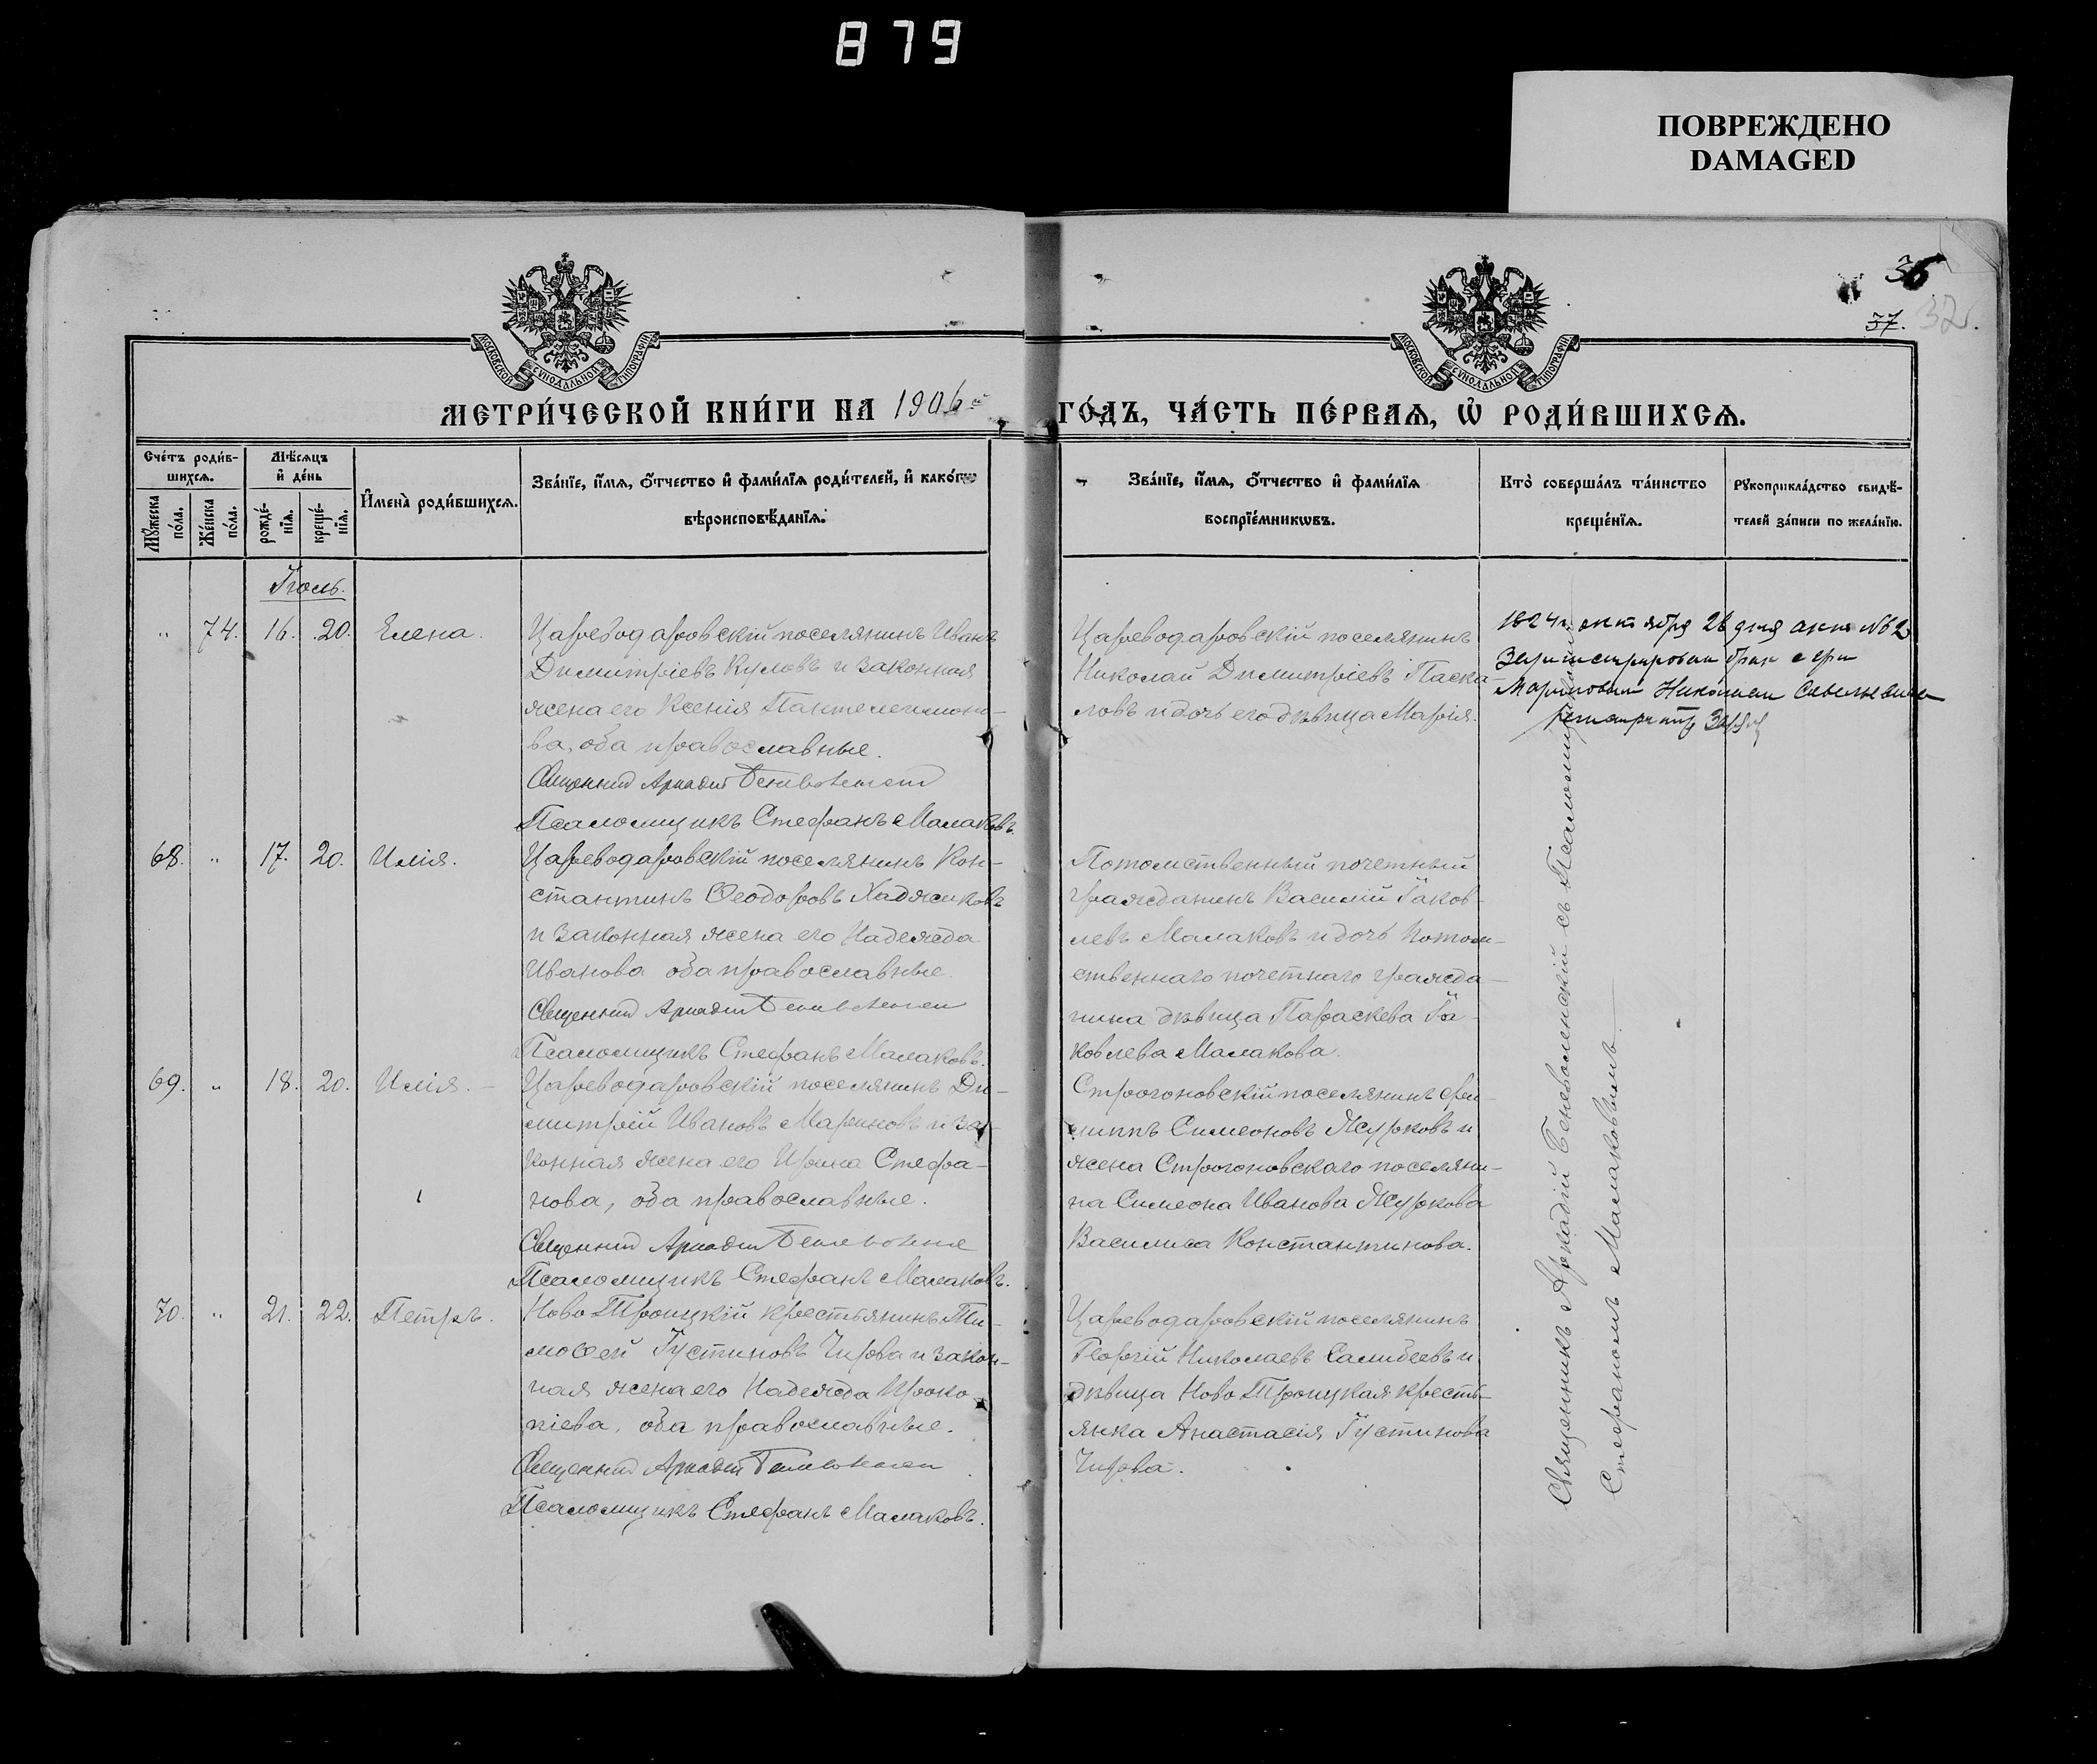 879
ПОВРЕЖДЕНО
DAMAGED
36
37. 32.
МОСКОВСКОЙ СУНОДАЛЬНОЙ ТИПОГРАФІИ
МОСКОВСКОЙ СУНОДАЛЬНОЙ ТИПОГРАФІИ
МЕТРИ́ЧЕСКОЙ КНИ́ГИ НА 1906 ГО́ДЪ, ЧА́СТЬ ПЕ́РВАѦ, Ѡ҆ РОДИ́ВШИХСѦ.
Сче́тъ роди́в-
шихсѧ.
Мꙋ́жеска по́ла.
Же́нска по́ла.
Мѣ́сѧцъ
и҆ де́нь
рожде́-нїѧ.
креще́-нїѧ.
И҆мена̀ роди́вшихсѧ.
Зва́нїе, и҆́мѧ, ѻ҆́тчество и҆ фами́лїѧ роди́телей, и҆ како́гѡ
вѣроисповѣ́данїѧ.
Зва́нїе, и҆́мѧ, ѻ҆́тчество и҆ фами́лїѧ
воспрїе́мникѡвъ.
Кто̀ соверша́лъ та́инство
креще́нїѧ.
Рꙋкоприкла́дство свидѣ́-
телей за́писи по жела́нїю.
Іюль.
" 74. 16. 20. Елена.
Цареводаровскій поселянинъ Иванъ
Димитріевъ Куловъ и законная
жена его Ксенія Пантелеимоно-
ва, оба православные.
Священник Аркадий
Псаломщикъ Стефанъ Малаковъ.
Цареводаровскій поселянинъ
Николай Димитріевъ Паска-
ловъ и дочь его дѣвица Марія.
октября 26 дня акт №
Зарегистрирован брак с гр-м
Николаем Савельевичем
68. " 17. 20. Илія.
Цареводаровскій поселянинъ Кон-
стантинъ Ѳеодоровъ Хаджиковъ
и законная жена его Надежда
Иванова оба православные.
Священник Аркадий
Псаломщикъ Стефанъ Малаковъ.
Потомственный почетный
гражданинъ Василій Іаков-
левъ Малаковъ и дочь потом-
ственнаго почетнаго гражда-
нина дѣвица Параскева Іа-
ковлева Малакова.
69. " 18. 20. Илія.
Цареводаровскій поселянинъ Ди-
митрій Ивановъ Мариновъ и за-
конная жена его Ирина Стефа-
нова, оба православные.
Священник Аркадий
Псаломщикъ Стефанъ Малаковъ.
Строгоновскій поселянинъ Фи-
липпъ Симеоновъ Журковъ и
жена Строгоновскаго поселяни-
на Симеона Иванова Журкова
Василиса Константинова.
70. " 21. 22. Петръ.
Ново Троицкій крестьянинъ Ти-
моѳей Іустиновъ Чирва и закон-
ная жена его Надежда Проко-
піева, оба православные.
Священник Аркадий
Псаломщикъ Стефанъ Малаковъ.
Цареводаровскій поселянинъ
Георгій Николаевъ Самибеевъ и
дѣвица Ново Троицкая кресть-
янка Анастасія Іустинова
Чирва.
Священникъ Аркадій Беневоленскій съ Псаломщикомъ
Стефаномъ Малаковымъ